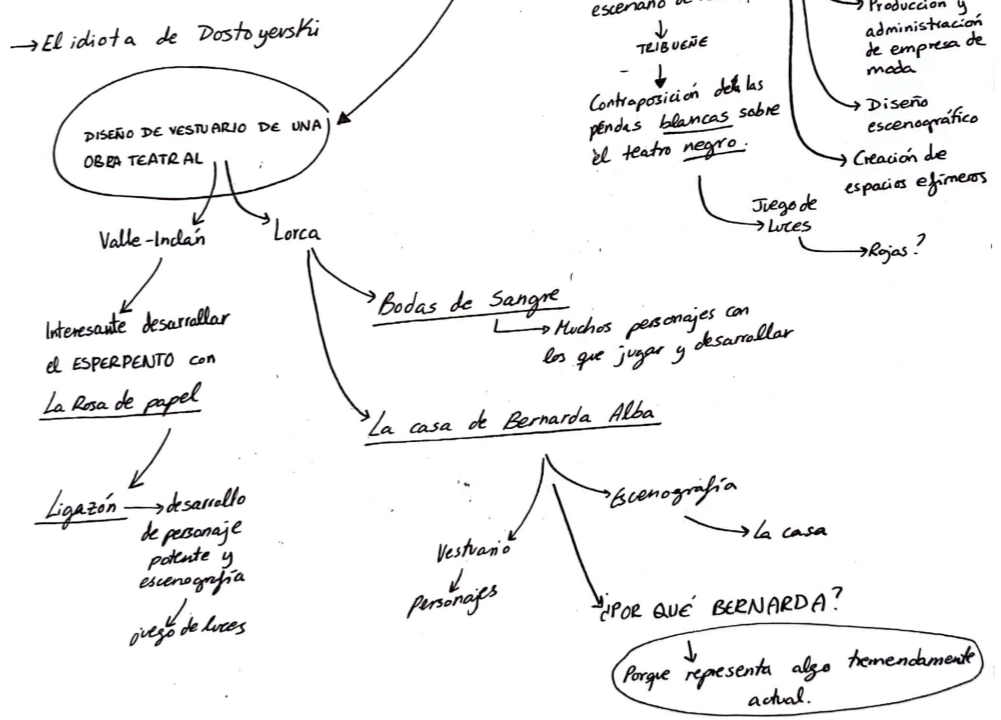 → El idiota de Dostoyevski
DISEÑO DE VESTUARIO DE UNA
OBRA TEATRAL
Valle-Inclán
Interesante desarrollar
el ESPERPENTO con
La Rosa de papel
Ligazón → desarrollo
de personaje
potente y
escenografía
juego de luces
Lorca
Bodas de Sangre
Muchos personajes con
los que jugar y desarrollar
La casa de Bernarda Alba
Vestuario
Personajes
Escenografía
La casa
¿POR QUÉ BERNARDA?
Porque representa algo tremendamente
actual.
escenario de
TRIBUEÑE
Contraposición de las
prendas blancas sobre
el teatro negro.
Juego de
Luces
Rojas?
Producción y
administración
de empresa de
moda
Diseño
escenográfico
Creación de
espacios efímeros